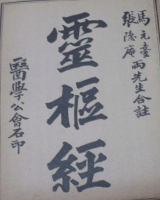 馬元臺
張隱庵
兩先生合註
靈樞經
醫學公會石印